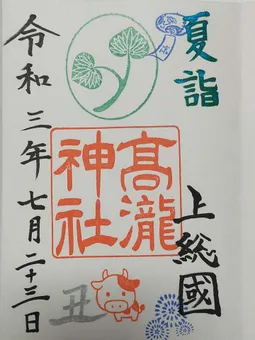 夏詣
上総國
髙瀧
神社
丑
令和三年七月二十三日